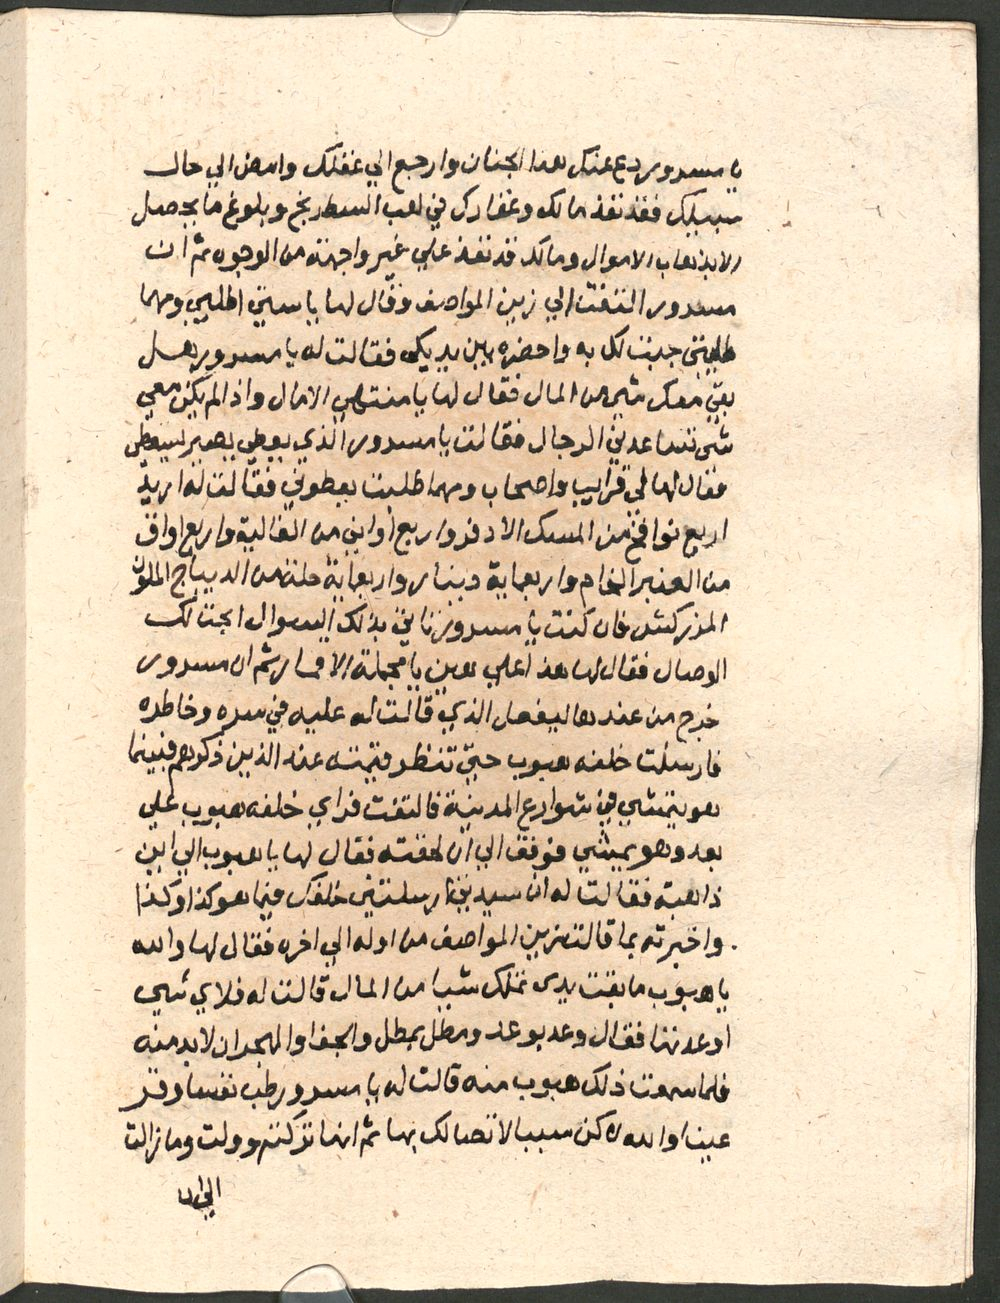 يا مسرور دع عنك هذا الجنان وارجع الي عقلك وامض الي حال
سبيلك فقد نفذ مالك وعقارك في لعب الشطرنج وبلوغ ما يحصل
الا بذهاب الاموال ومالك قد نفذ علي غير واجهة من الوجوه ثم ان
مسرور التفت الي زين المواصف وقال لها يا ستي اطلبي ومهما
طلبتي جيت لك به واحضره بين يديكي فقالت له يا مسرور هل
بقي معك شي من المال فقال لها يا منتهي الامال واذا لم يكن معي
شي تساعدني الرجال فقالت يا مسرور الذي يعطي يصير يستعطي
فقال لها لي قرايب واصحاب ومهما طلبت يعطوني فقالت له اريد
اربع نوافخ من المسك الادفر واربع اواني من الغالية واربع اواق
من العنبر الخام واربعماية دينار واربعماية حلة من الديباج الملون
المزركش فان كنت يا مسرور تاتي بذلك السوال ابحت لك
الوصال فقال لها هذا علي هين يا مخجلة الاقمار ثم ان مسرور
خرج من عندها ليفعل الذي قالت له عليه في سره وخاطره
فارسلت خلفه هبوب حتي تنظر قيمته عند الذين ذكرهم فبينما
هو يتمشي في شوارع المدينة فالتفت فراي خلفه هبوب علي
بعد وهو يمشي فوقف الي ان لحقته فقال لها يا هبوب الي اين
ذاهبة فقالت له ان سيدتي ارسلتني خلفك فيما هو كذا وكذا
واخبرته بما قالت زين المواصف من اوله الي اخره فقال لها والله
يا هبوب ما بقت يدي تملك شيا من المال قالت له فلاي شي
اوعدتها فقال وعد بوعد ومطل بمطل والجفا والهجران لا بد منه
فلما سمعت ذلك هبوب منه قالت له يا مسرور طب نفسا وقر
عينا والله لاكن سببا لاتصالك بها ثم انها تركته وولت وما زالت
الي ان